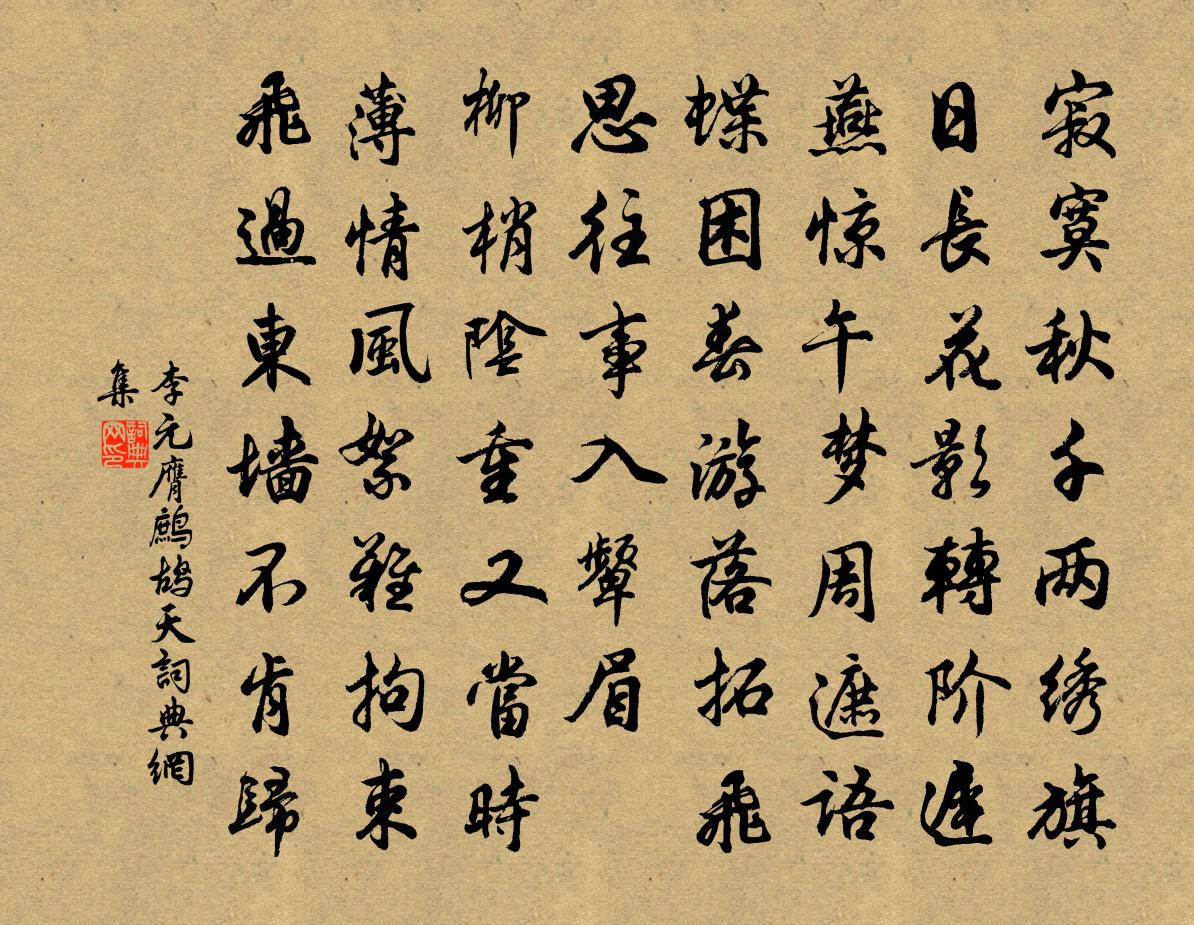 寂寞秋千两绣旗
日長花影轉阶遲
燕惊午梦周遮語
蝶困春游落拓飛
思往事入顰眉
柳梢陰重又當時
薄情風絮難拘束
飛過東墙不肯歸
李元膺鷓鴣天詞典網
集
詞典
网印